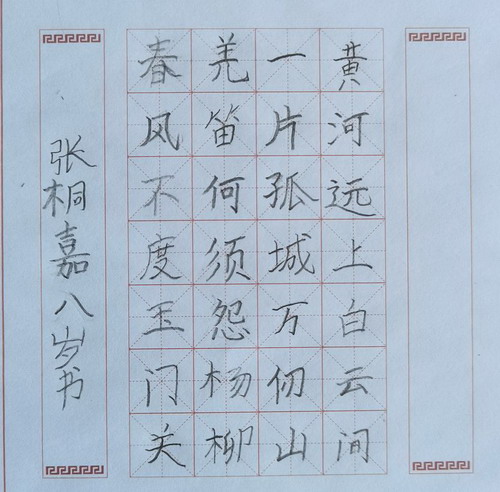 黄河远上白云间
一片孤城万仞山
羌笛何须怨杨柳
春风不度玉门关
张桐嘉八岁书